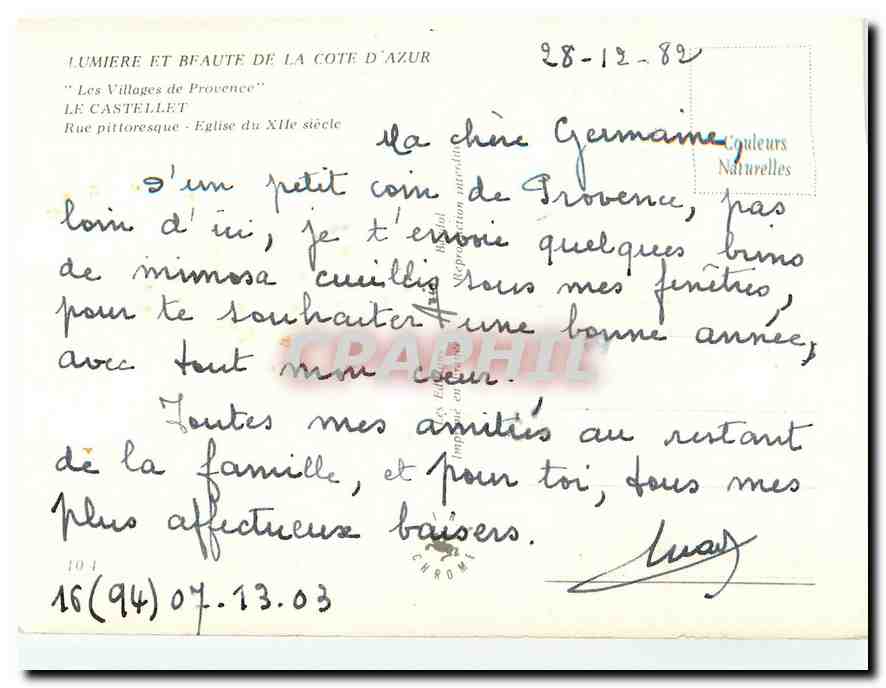 LUMIERE ET BEAUTE DE LA COTE D'AZUR
" Les Villages de Provence"
LE CASTELLET
Rue pittoresque - Eglise du XIIe siècle
28-12-82
Couleurs
Naturelles
Ma chère Germaine,
D'un petit coin de Provence, pas
loin d'ici, je t'envoie quelques brins
de mimosa cueillis sous mes fenêtres,
pour te souhaiter une bonne année,
avec tout mon cœur.
Toutes mes amitiés au restant
de la famille, et pour toi, tous mes
plus affectueux baisers.
16 (94) 07.13.03
104
Reproduction interdite
Les Editions
Imprimé en
CHROME
CPAPHIL